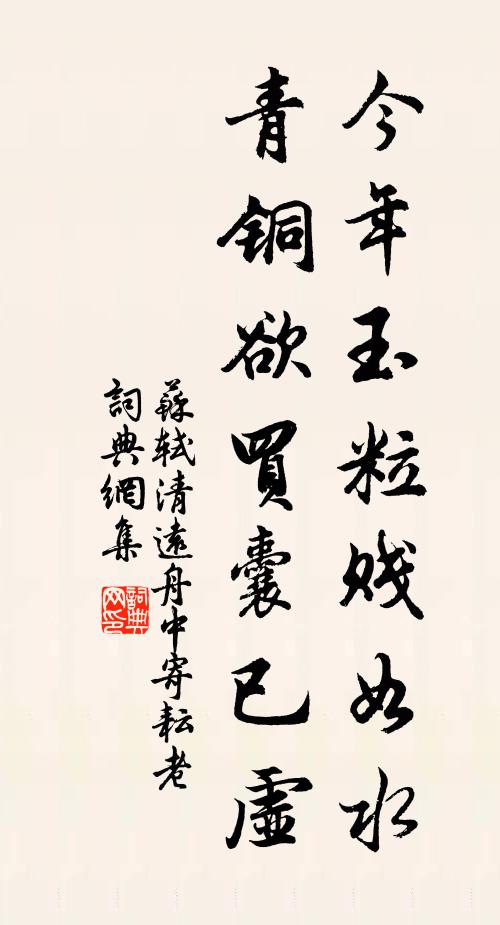 今年玉粒贱如水
青铜欲買囊已虛
蘇轼清遠舟中寄耘老
詞典網集
詞典网印